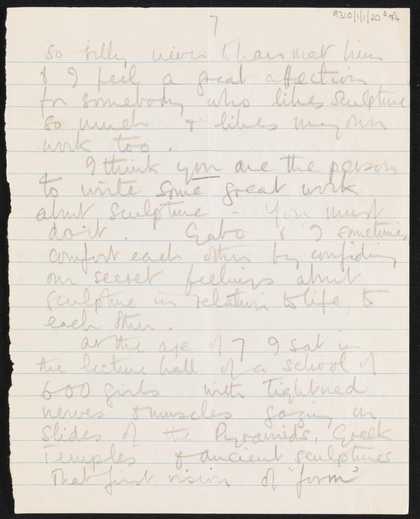 7
so silly, never I have met him
& I feel a great affection
for somebody who likes sculpture
so much & likes my own
work too.
I think you are the person
to write some great work
about sculpture - You must
do it. Gabo & I sometimes
comfort each other by confiding
our secret feelings about
sculpture in relation to life, to
each other.
At the age of 7 I sat in
the lecture hall of a school of
600 girls with tightened
nerves & muscles gazing on
slides of the Pyramids, Greek
Temples & ancient sculptures
That first vision of 'form'